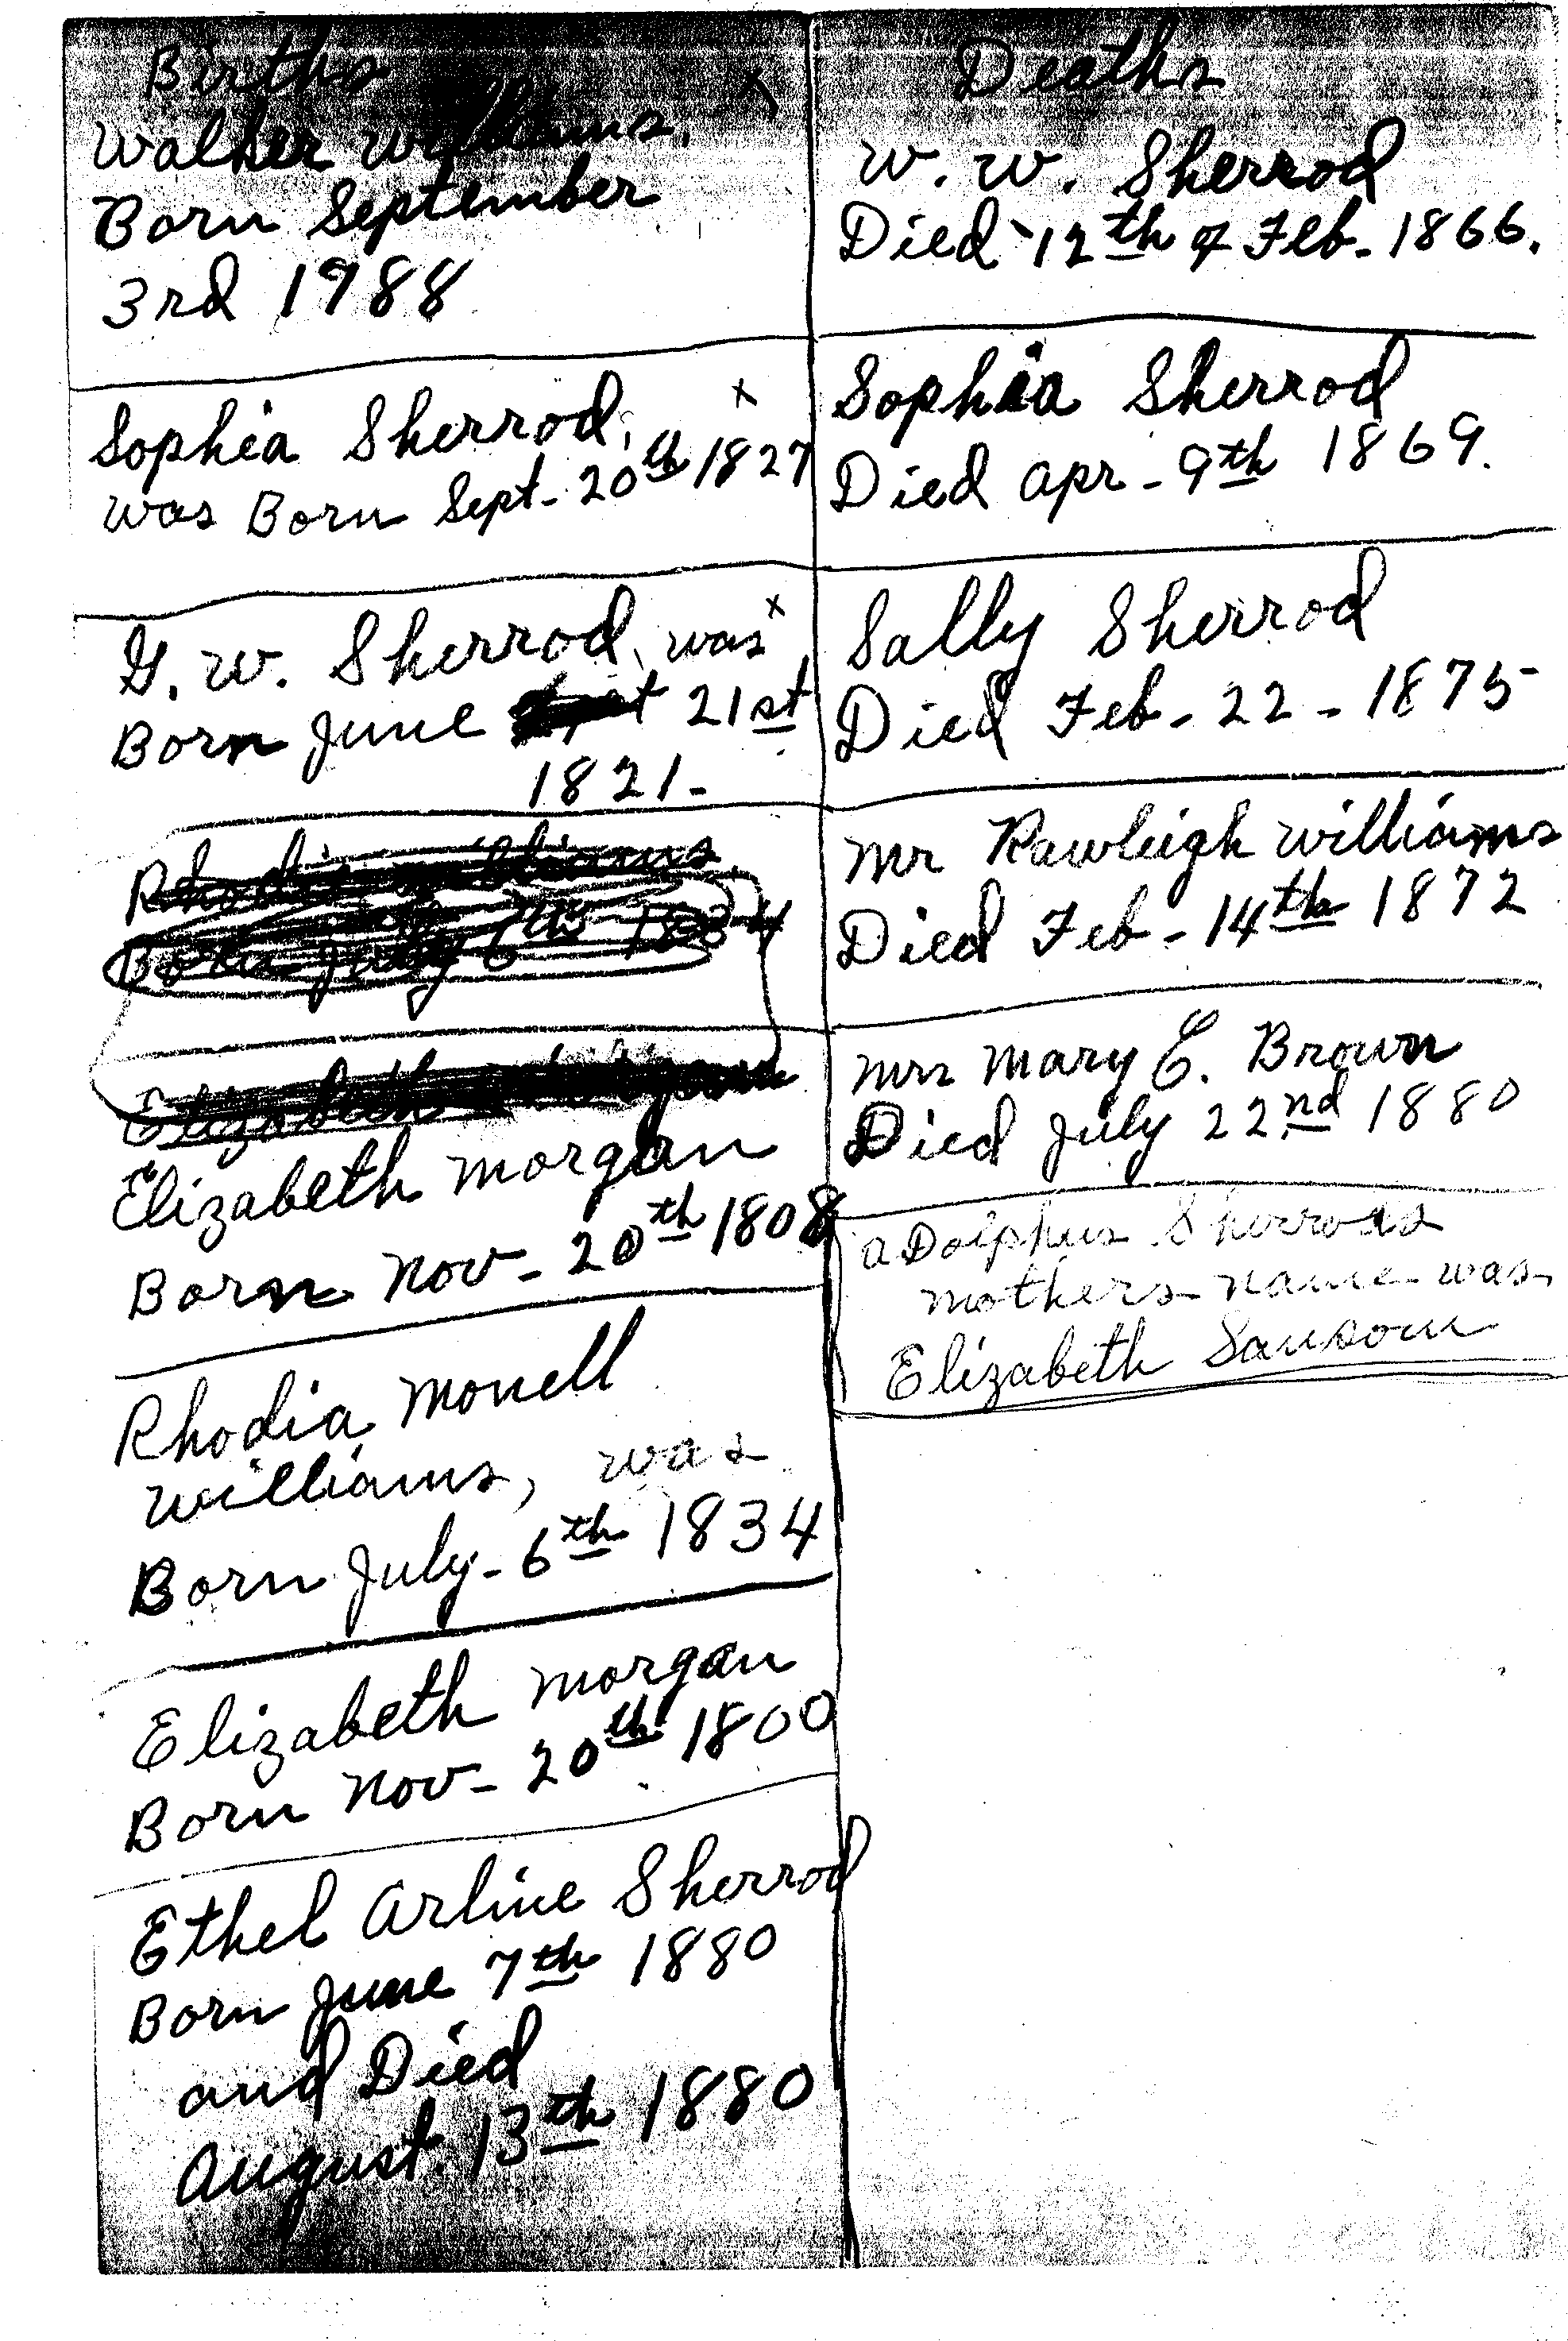 Births
Walker Williams.
Born September
3rd 1988
Sophia Sherrod,
was Born Sept- 20th 1827
G. W. Sherrod, was
Born June 21st
1821-
Rhodia Williams
Born July 6th 1834
Elizabeth
Elizabeth Morgan
Born Nov- 20th 1808
Rhodia Monell
Williams, was
Born July- 6th 1834
Elizabeth Morgan
Born Nov- 20th 1800
Ethel Arline Sherrod
Born June 7th 1880
and Died
August. 13th 1880
Deaths
W. W. Sherrod
Died 12th of Feb- 1866.
Sophia Sherrod
Died Apr- 9th 1869.
Sally Sherrod
Died Feb- 22- 1875
Mr Rawleigh Williams
Died Feb- 14th 1872
Mrs Mary E. Brown
Died July 22nd 1880
aDolphus Sherrods
mothers name was
Elizabeth Sansom